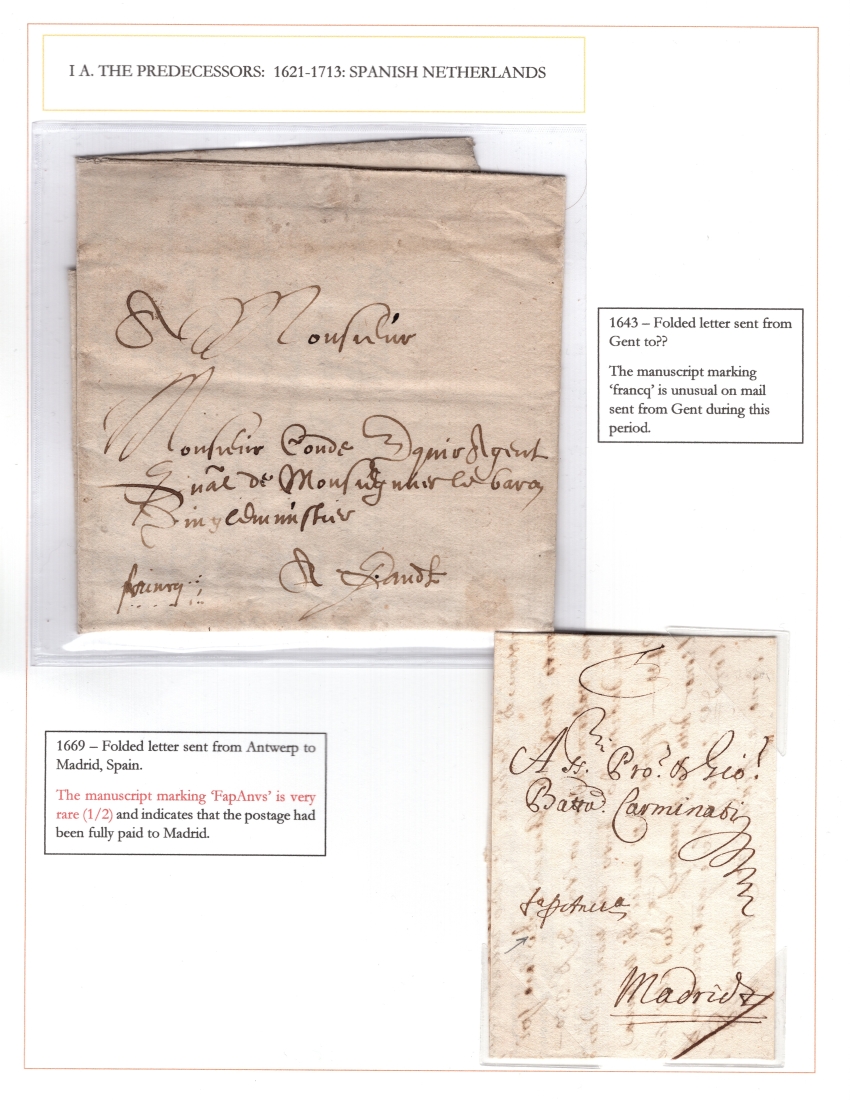 I A. THE PREDECESSORS: 1621-1713: SPANISH NETHERLANDS
A Monsieur
Monsieur Conde Agent
de Monsigneur le baron
A Gandt
1643 – Folded letter sent from
Gent to??
The manuscript marking
‘francq’ is unusual on mail
sent from Gent during this
period.
1669 – Folded letter sent from Antwerp to
Madrid, Spain.
The manuscript marking ‘FapAnvs’ is very
rare (1/2) and indicates that the postage had
been fully paid to Madrid.
A Pro. Gio.
Batta. Carminati
Madrid